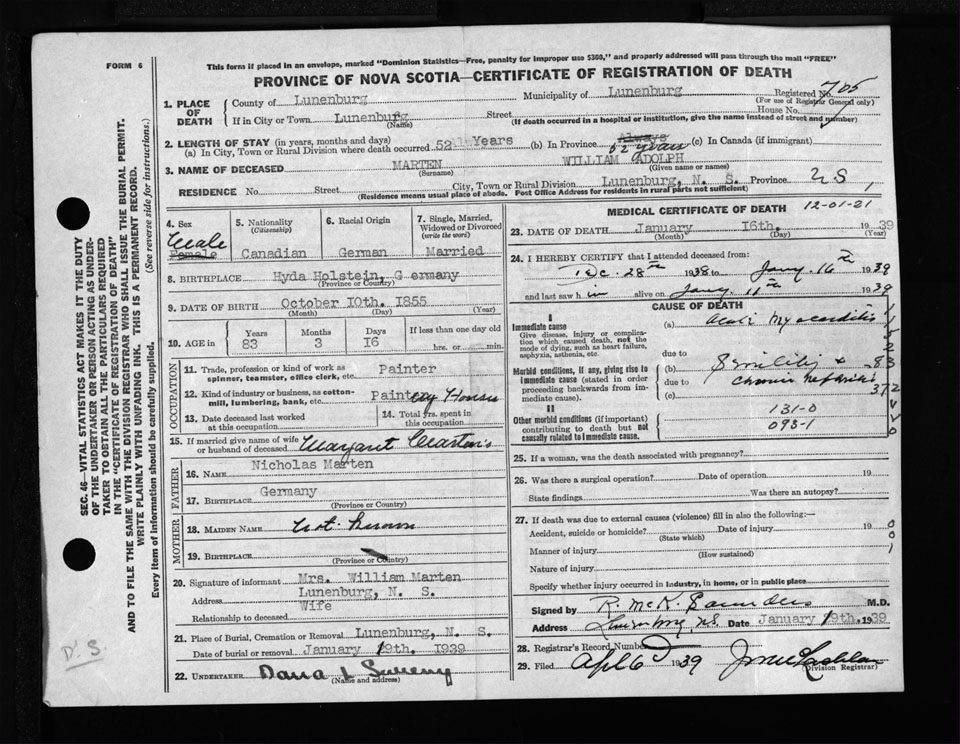 FORM 6
This form if placed in an envelope, marked "Dominion Statistics—Free, penalty for improper use $300," and properly addressed will pass through the mail "FREE"
PROVINCE OF NOVA SCOTIA—CERTIFICATE OF REGISTRATION OF DEATH
SEC. 46—VITAL STATISTICS ACT MAKES IT THE DUTY
OF THE UNDERTAKER OR PERSON ACTING AS UNDER-
TAKER TO OBTAIN ALL THE PARTICULARS REQUIRED
IN THE "CERTIFICATE OF REGISTRATION OF DEATH"
AND TO FILE THE SAME WITH THE DIVISION REGISTRAR WHO SHALL ISSUE THE BURIAL PERMIT.
WRITE PLAINLY WITH UNFADING INK. THIS IS A PERMANENT RECORD.
Every item of information should be carefully supplied. (See reverse side for instructions.)
1. PLACE OF DEATH
County of Lunenburg Municipality of Lunenburg Registered No. 705
(For use of Registrar General only)
If in City or Town Lunenburg Street House No.
(Name) (If death occurred in a hospital or institution, give the name instead of street and number)
2. LENGTH OF STAY (in years, months and days)
(a) In City, Town or Rural Division where death occurred 52 Years (b) In Province Always 52 years (c) In Canada (if immigrant)
3. NAME OF DECEASED MARTEN WILLIAM ADOLPH
(Surname) (Given name or names)
RESIDENCE No. Street City, Town or Rural Division Lunenburg, N. S. Province N S
(Residence means usual place of abode. Post Office Address for residents in rural parts not sufficient)
4. Sex Male Female
5. Nationality (Citizenship) Canadian
6. Racial Origin German
7. Single, Married, Widowed or Divorced (write the word) Married
8. BIRTHPLACE Hyda Holstein, G ermany
(Province or Country)
9. DATE OF BIRTH October 10th. 1855
(Month) (Day) (Year)
10. AGE in Years 83 Months 3 Days 16 If less than one day old hrs. or min.
OCCUPATION
11. Trade, profession or kind of work as spinner, teamster, office clerk, etc. Painter
12. Kind of industry or business, as cotton-mill, lumbering, bank, etc. Painting Houses
13. Date deceased last worked at this occupation
14. Total yrs. spent in this occupation
15. If married give name of wife or husband of deceased Margaret Martens
FATHER
16. NAME Nicholas Marten
17. BIRTHPLACE Germany
MOTHER
18. MAIDEN NAME Not Known
19. BIRTHPLACE
(Province or Country)
20. Signature of informant Mrs. William Marten
Address Lunenburg, N. S.
Relationship to deceased Wife
21. Place of Burial, Cremation or Removal Lunenburg, N. S.
Date of burial or removal January 19th. 1939
22. UNDERTAKER Dana L Sweeny
(Name and address)
D. S.
MEDICAL CERTIFICATE OF DEATH 12-01-21
23. DATE OF DEATH January 16th. 1939
(Month) (Day) (Year)
24. I HEREBY CERTIFY that I attended deceased from:
Dec. 28th 1938 to Jany. 16th 1939
and last saw h im alive on Jany. 11th 1939
CAUSE OF DEATH
I
Immediate cause
Give disease, injury or complication which caused death, not the mode of dying, such as heart failure, asphyxia, asthenia, etc.
(a) Myocarditis
Morbid conditions, if any, giving rise to immediate cause (stated in order proceeding backwards from immediate cause).
due to
(b) Senility &
due to chronic nephritis
(c)
II
Other morbid conditions (if important) contributing to death but not causally related to immediate cause.
131-0
093-1
25. If a woman, was the death associated with pregnancy?
26. Was there a surgical operation? Date of operation 19
State findings Was there an autopsy?
27. If death was due to external causes (violence) fill in also the following:—
Accident, suicide or homicide? Date of injury 19
(State which)
Manner of injury
(How sustained)
Nature of injury
Specify whether injury occurred in industry, in home, or in public place
Signed by R. McK. Saunders M.D.
Address Lunenburg, N.S. Date January 19th. 1939
28. Registrar's Record Number
29. Filed Apl 6 1939
(Division Registrar)